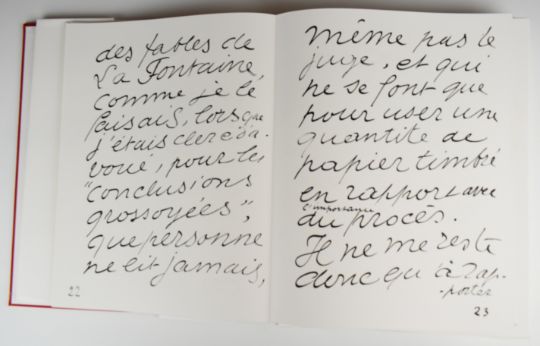 des fables de
La Fontaine,
comme je le
faisais, lorsque
j'étais clerc d'a-
voué, pour les
"conclusions
grossoyées",
que personne
ne lit jamais,
22
même pas le
juge, et qui
ne se font que
pour user une
quantité de
papier timbré
en rapport avec
l'importance
du procès.
Il ne me reste
donc qu'à rap-
-porter
23